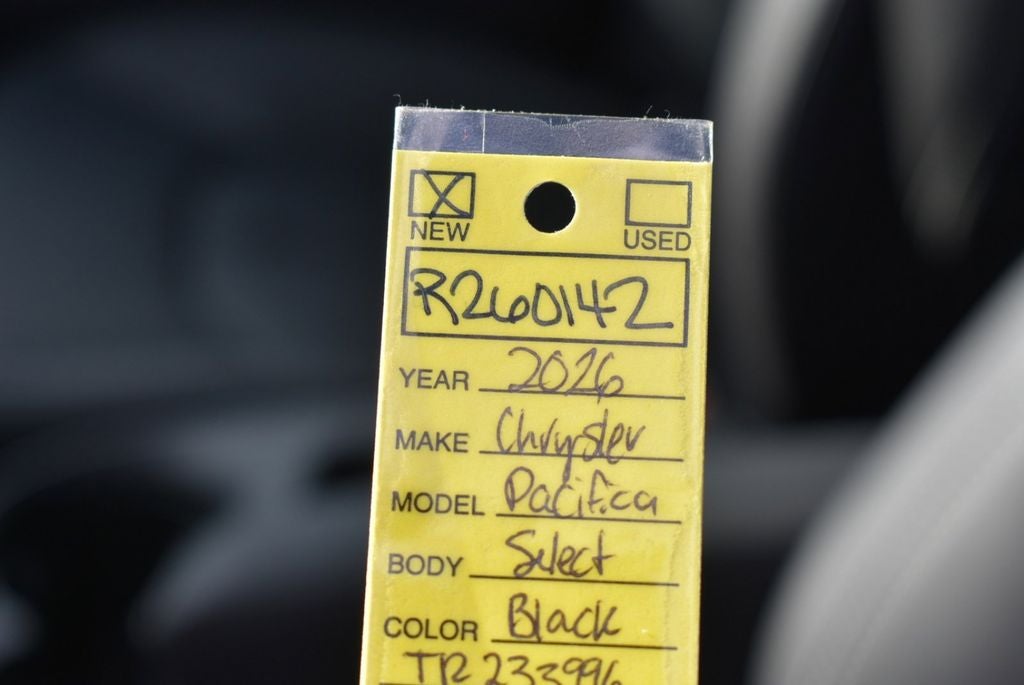 NEW USED
R260142
YEAR 2026
MAKE Chrysler
MODEL Pacifica
BODY Select
COLOR Black
TR233996